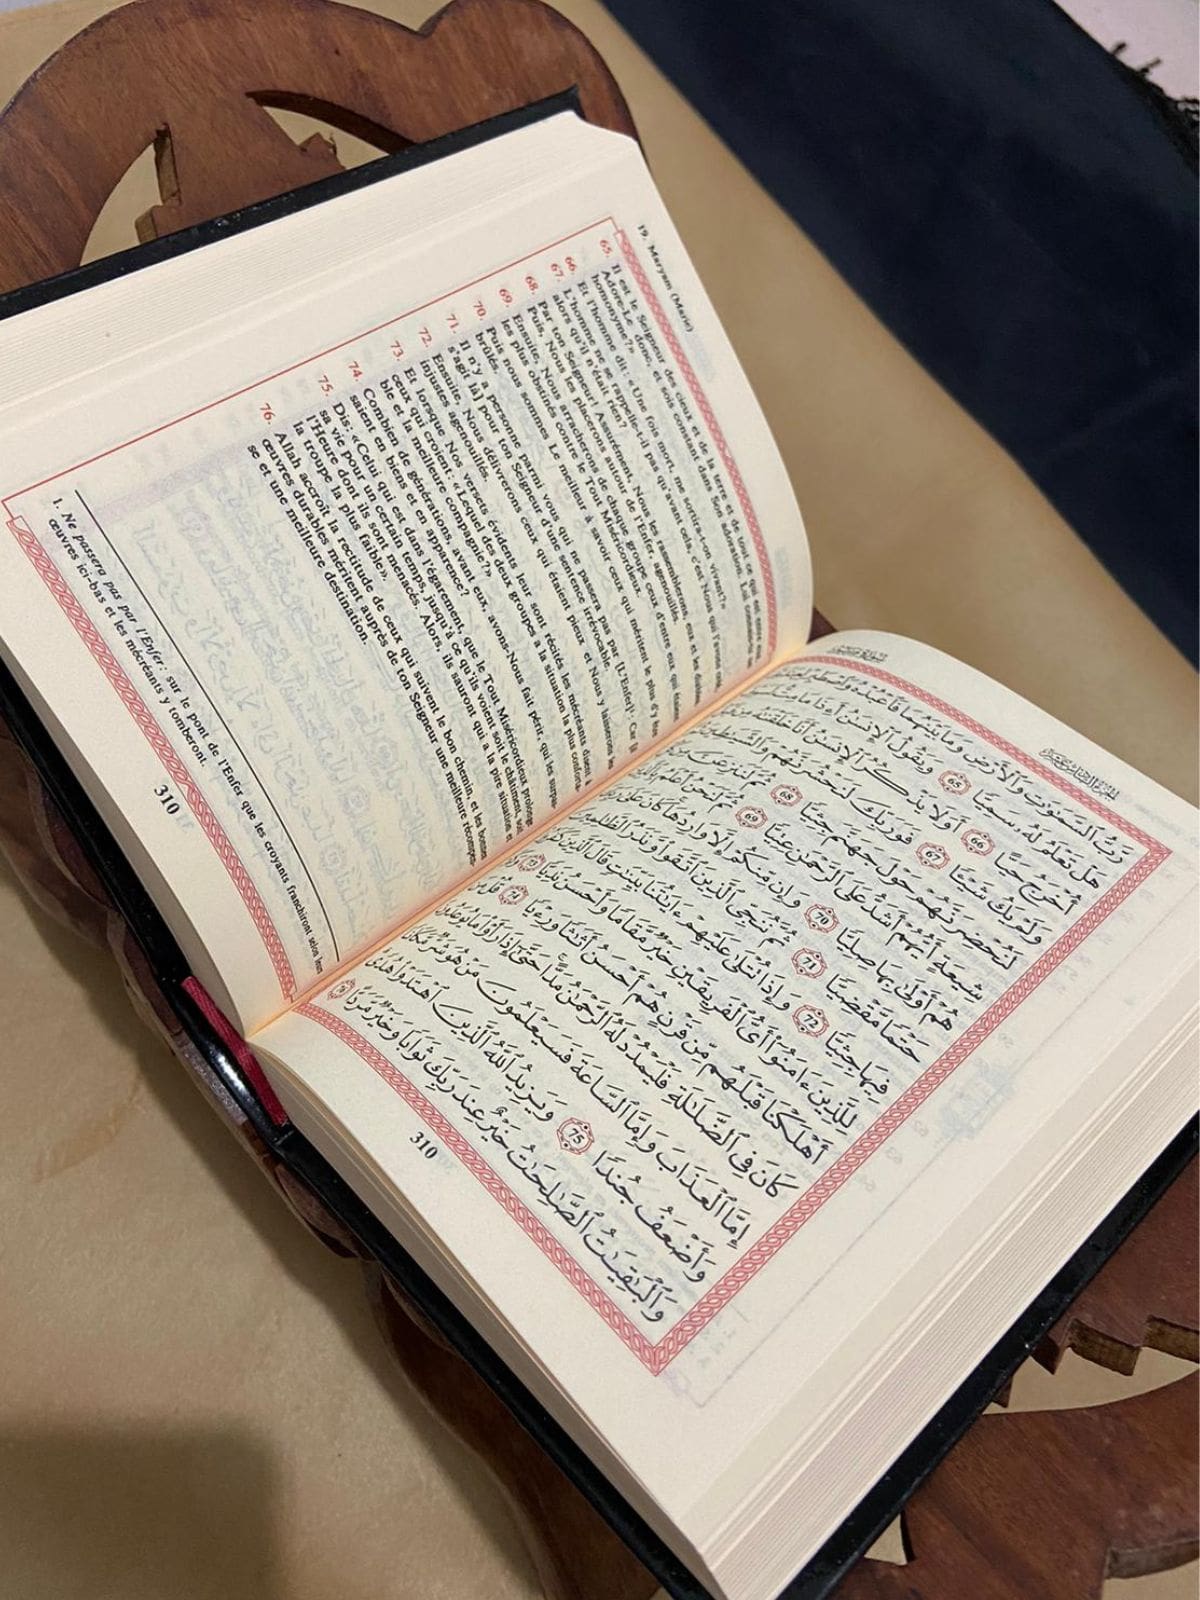 19. Maryam (Marie)
65. Il est le Seigneur des cieux et de la terre et de tout ce qui est entre eux.
Adore-Le donc, et sois constant dans Son adoration. Lui connais-tu un
homonyme?»
66. Et l'homme dit: «Une fois mort, me sortira-t-on vivant?»
67. L'homme ne se rappelle-t-il pas qu'avant cela, c'est Nous qui l'avons créé,
alors qu'il n'était rien?
68. Par ton Seigneur! Assurément, Nous les rassemblerons, eux et les diables.
Puis, Nous les placerons autour de l'Enfer, agenouillés.
69. Ensuite, Nous arracherons de chaque groupe ceux d'entre eux qui étaient
les plus obstinés contre le Tout Miséricordieux.
70. Puis nous sommes Le meilleur à savoir ceux qui méritent le plus d'y être
brûlés.
71. Il n'y a personne parmi vous qui ne passera pas par [L'Enfer]¹: Car [il
s'agit là] pour ton Seigneur d'une sentence irrévocable.
72. Ensuite, Nous délivrerons ceux qui étaient pieux et Nous y laisserons les
injustes agenouillés.
73. Et lorsque Nos versets évidents leur sont récités les mécréants disent à
ceux qui croient: «Lequel des deux groupes a la situation la plus conforta-
ble et la meilleure compagnie?»
74. Combien de générations, avant eux, avons-Nous fait périr, qui les surpas-
saient en biens et en apparence?
75. Dis: «Celui qui est dans l'égarement, que le Tout Miséricordieux prolonge
sa vie pour un certain temps, jusqu'à ce qu'ils voient soit le châtiment, soit
l'Heure dont ils sont menacés. Alors, ils sauront qui a la pire situation et
la troupe la plus faible».
76. Allah accroît la rectitude de ceux qui suivent le bon chemin, et les bonnes
œuvres durables méritent auprès de ton Seigneur une meilleure récompen-
se et une meilleure destination.
1. Ne passera pas par l'Enfer: sur le pont de l'Enfer que les croyants franchiront selon leurs
œuvres ici-bas et les mécréants y tomberont.
310
رَّبُّ ٱلسَّمَٰوَٰتِ وَٱلْأَرْضِ وَمَا بَيْنَهُمَا فَٱعْبُدْهُ وَٱصْطَبِرْ
هَلْ تَعْلَمُ لَهُۥ سَمِيًّا 65 وَيَقُولُ ٱلْإِنسَٰنُ أَءِذَا مَا مِتُّ
أُخْرَجُ حَيًّا 66 أَوَلَا يَذْكُرُ ٱلْإِنسَٰنُ أَنَّا خَلَقْنَٰهُ مِن
وَلَمْ يَكُ شَيْـًٔا 67 فَوَرَبِّكَ لَنَحْشُرَنَّهُمْ وَٱلشَّيَٰطِينَ
لَنُحْضِرَنَّهُمْ حَوْلَ جَهَنَّمَ جِثِيًّا 68 ثُمَّ لَنَنزِعَنَّ مِن
شِيعَةٍ أَيُّهُمْ أَشَدُّ عَلَى ٱلرَّحْمَٰنِ عِتِيًّا 69 ثُمَّ لَنَحْنُ أَعْلَمُ بِٱلَّذِينَ
هُمْ أَوْلَىٰ بِهَا صِلِيًّا 70 وَإِن مِّنكُمْ إِلَّا وَارِدُهَا كَانَ عَلَىٰ رَبِّكَ
حَتْمًا مَّقْضِيًّا 71 ثُمَّ نُنَجِّى ٱلَّذِينَ ٱتَّقَوا۟ وَّنَذَرُ ٱلظَّٰلِمِينَ
فِيهَا جِثِيًّا 72 وَإِذَا تُتْلَىٰ عَلَيْهِمْ ءَايَٰتُنَا بَيِّنَٰتٍ قَالَ ٱلَّذِينَ كَفَرُوا۟
لِلَّذِينَ ءَامَنُوٓا۟ أَىُّ ٱلْفَرِيقَيْنِ خَيْرٌ مَّقَامًا وَأَحْسَنُ نَدِيًّا 73 وَكَمْ
أَهْلَكْنَا قَبْلَهُم مِّن قَرْنٍ هُمْ أَحْسَنُ أَثَٰثًا وَرِءْيًا 74 قُلْ مَن
كَانَ فِى ٱلضَّلَٰلَةِ فَلْيَمْدُدْ لَهُ ٱلرَّحْمَٰنُ مَدًّا حَتَّىٰٓ إِذَا رَأَوْا۟ مَا يُوعَدُونَ
إِمَّا ٱلْعَذَابَ وَإِمَّا ٱلسَّاعَةَ فَسَيَعْلَمُونَ مَنْ هُوَ شَرٌّ مَّكَانًا
وَأَضْعَفُ جُندًا 75 وَيَزِيدُ ٱللَّهُ ٱلَّذِينَ ٱهْتَدَوْا۟ هُدًى
وَٱلْبَٰقِيَٰتُ ٱلصَّٰلِحَٰتُ خَيْرٌ عِندَ رَبِّكَ ثَوَابًا وَخَيْرٌ مَّرَدًّا 76
310